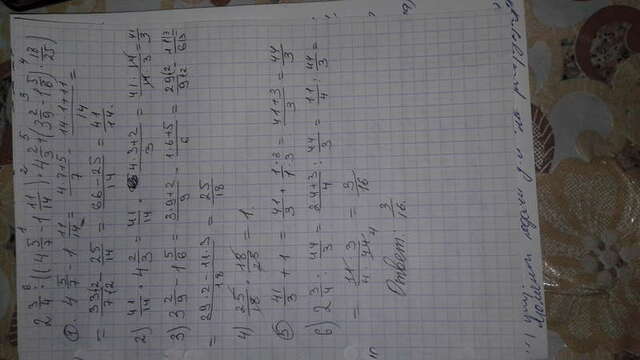 2 3/4 : ((4 5/7 - 1 11/14) · 4 2/3 + (3 2/9 - 1 5/6) · 18/25)
1. 4 5/7 - 1 11/14 = 4·7+5/7 - 14·1+11/14 =
= 33·2/7·2 - 25/14 = 66-25/14 = 41/14.
2) 41/14 · 4 2/3 = 41/14 · 4·3+2/3 = 41·14/14·3 = 41/3
3) 3 2/9 - 1 5/6 = 3·9+2/9 - 1·6+5/6 = 29·2/9·2 - 11·3/6·3 =
= 29·2-11·3/18 = 25/18
4) 25/18 · 18/25 = 1.
5) 41/3 + 1 = 41/3 + 1·3/1·3 = 41+3/3 = 44/3
6) 2 3/4 : 44/3 = 2·4+3/4 : 44/3 = 11/4 : 44/3 =
= 11·3/4·44 4 = 3/16
Ответ: 3/16.